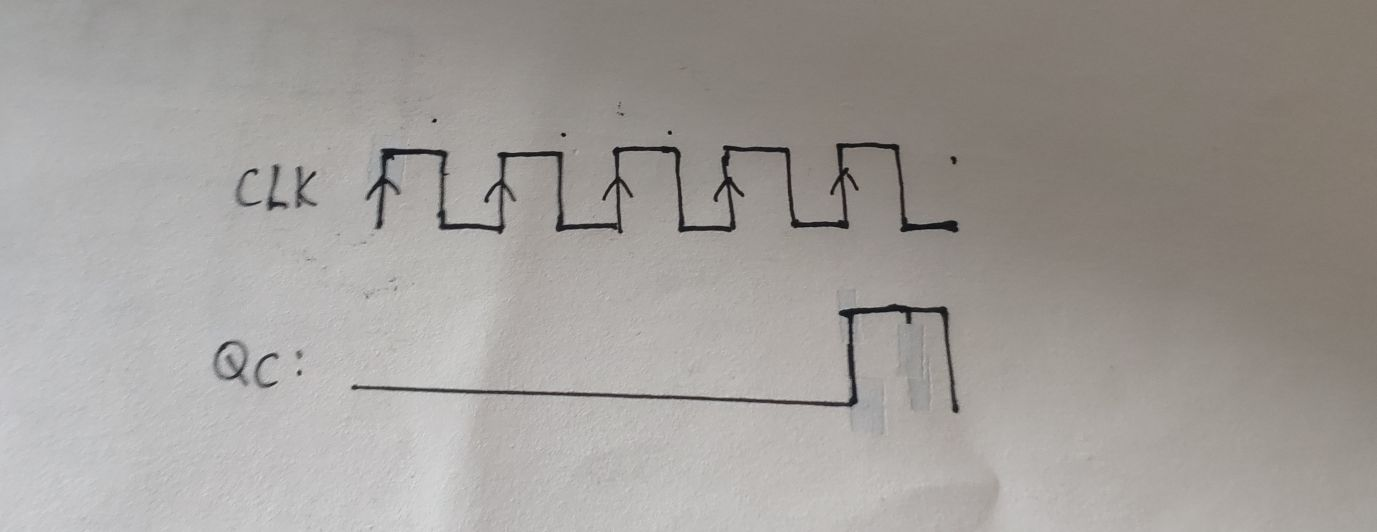 CLK
QC: